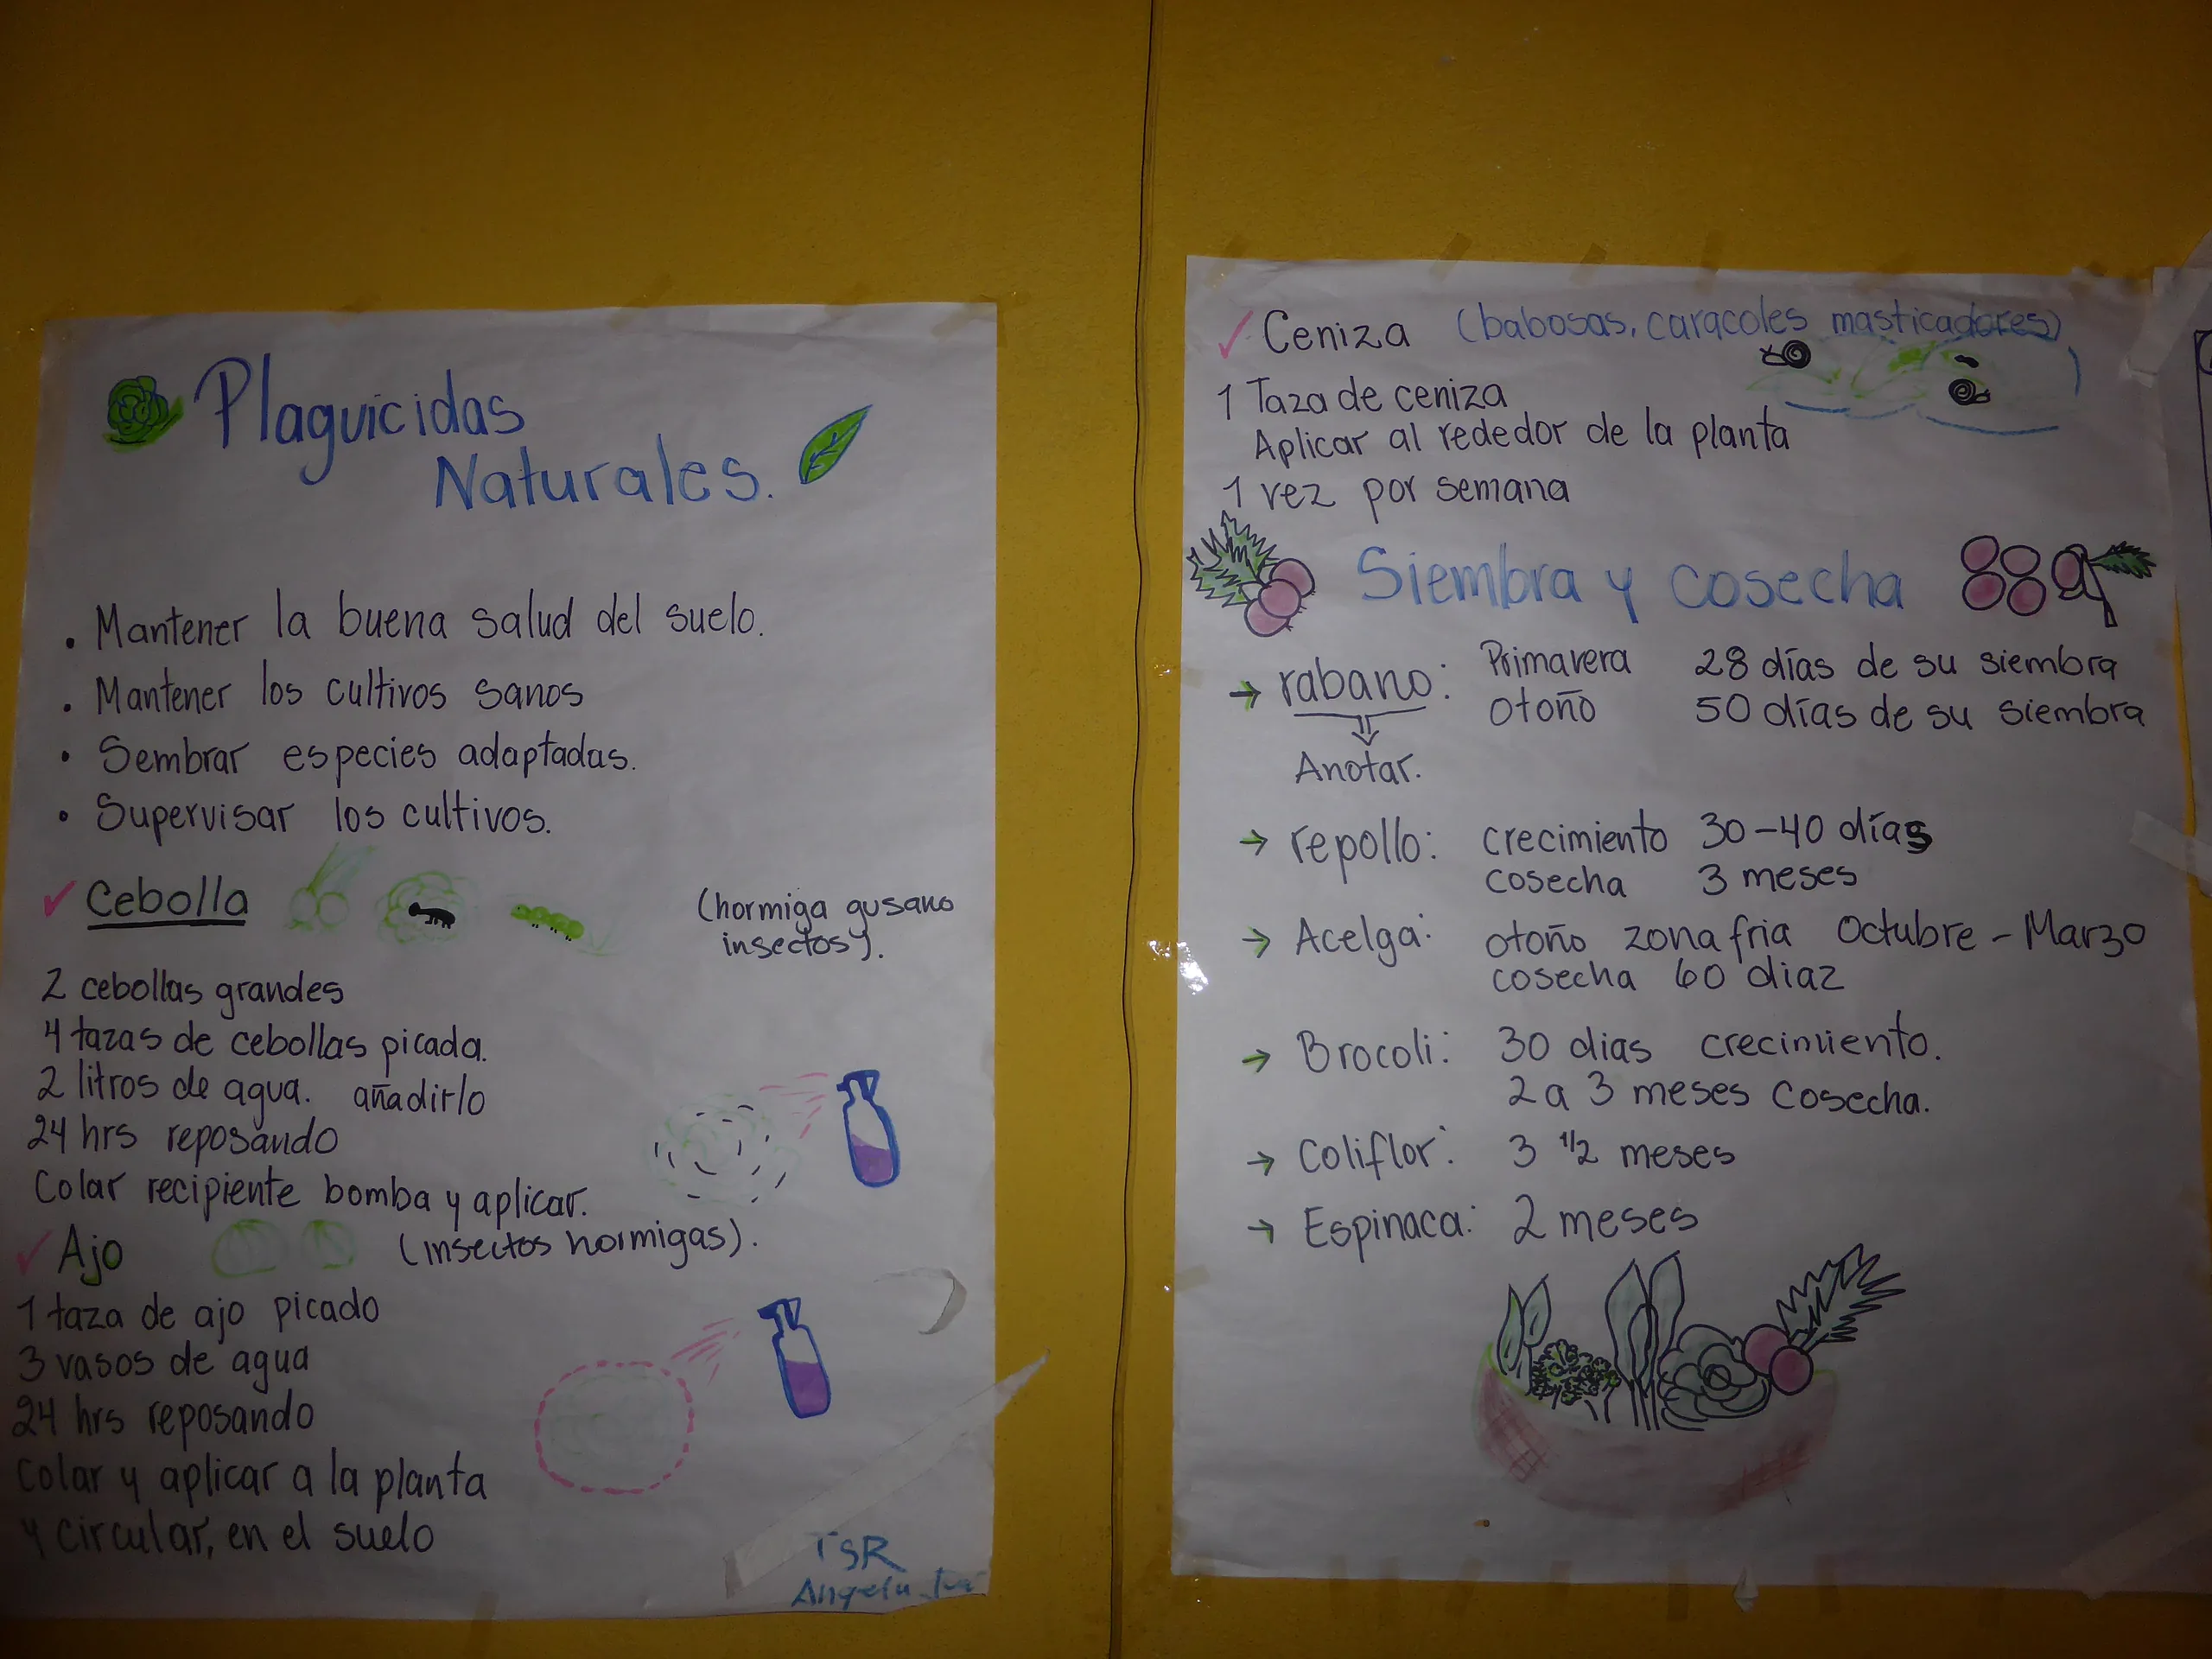 Plaguicidas
Naturales.
. Mantener la buena salud del suelo.
. Mantener los cultivos sanos
• Sembrar especies adaptadas.
• Supervisar los cultivos.
✓ Cebolla (hormiga gusano
insectos).
2 cebollas grandes
4 tazas de cebollas picada.
2 litros de agua. añadirlo
24 hrs reposando
Colar recipiente bomba y aplicar.
✓ Ajo (insectos hormigas).
1 taza de ajo picado
3 vasos de agua
24 hrs reposando
Colar y aplicar a la planta
y circular, en el suelo
TSR
✓ Ceniza (babosas, caracoles masticadores)
1 Taza de ceniza
Aplicar al rededor de la planta
1 vez por semana
Siembra y cosecha
→ rabano: Primavera 28 días de su siembra
otoño 50 días de su siembra
Anotar.
→ repollo: crecimiento 30-40 días
cosecha 3 meses
→ Acelga: otoño zona fria Octubre - Marzo
cosecha 60 diaz
→ Brocoli: 30 dias crecimiento.
2 a 3 meses Cosecha.
→ Coliflor: 3 1/2 meses
→ Espinaca: 2 meses